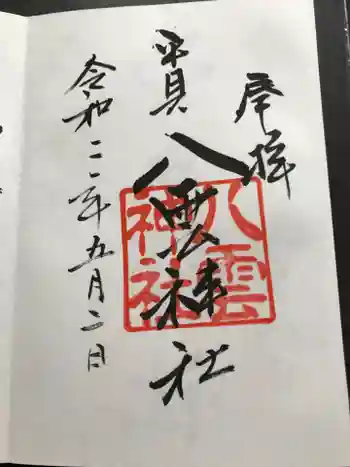 奉拝
貫 八雲神社
八雲神社
令和二年五月二日